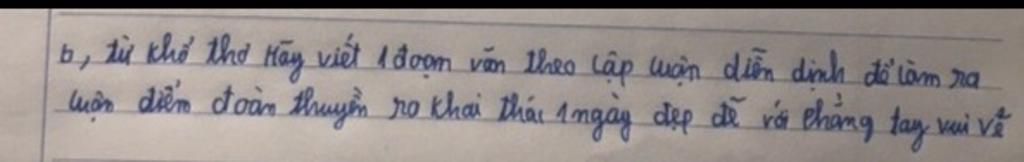 b, từ khổ thơ Hãy viết 1 đoạn văn theo lập luận diễn dịnh để làm ra
luận điểm đoàn thuyền ra khai thác 1 ngày đẹp đẽ và thắng tay vui vẻ